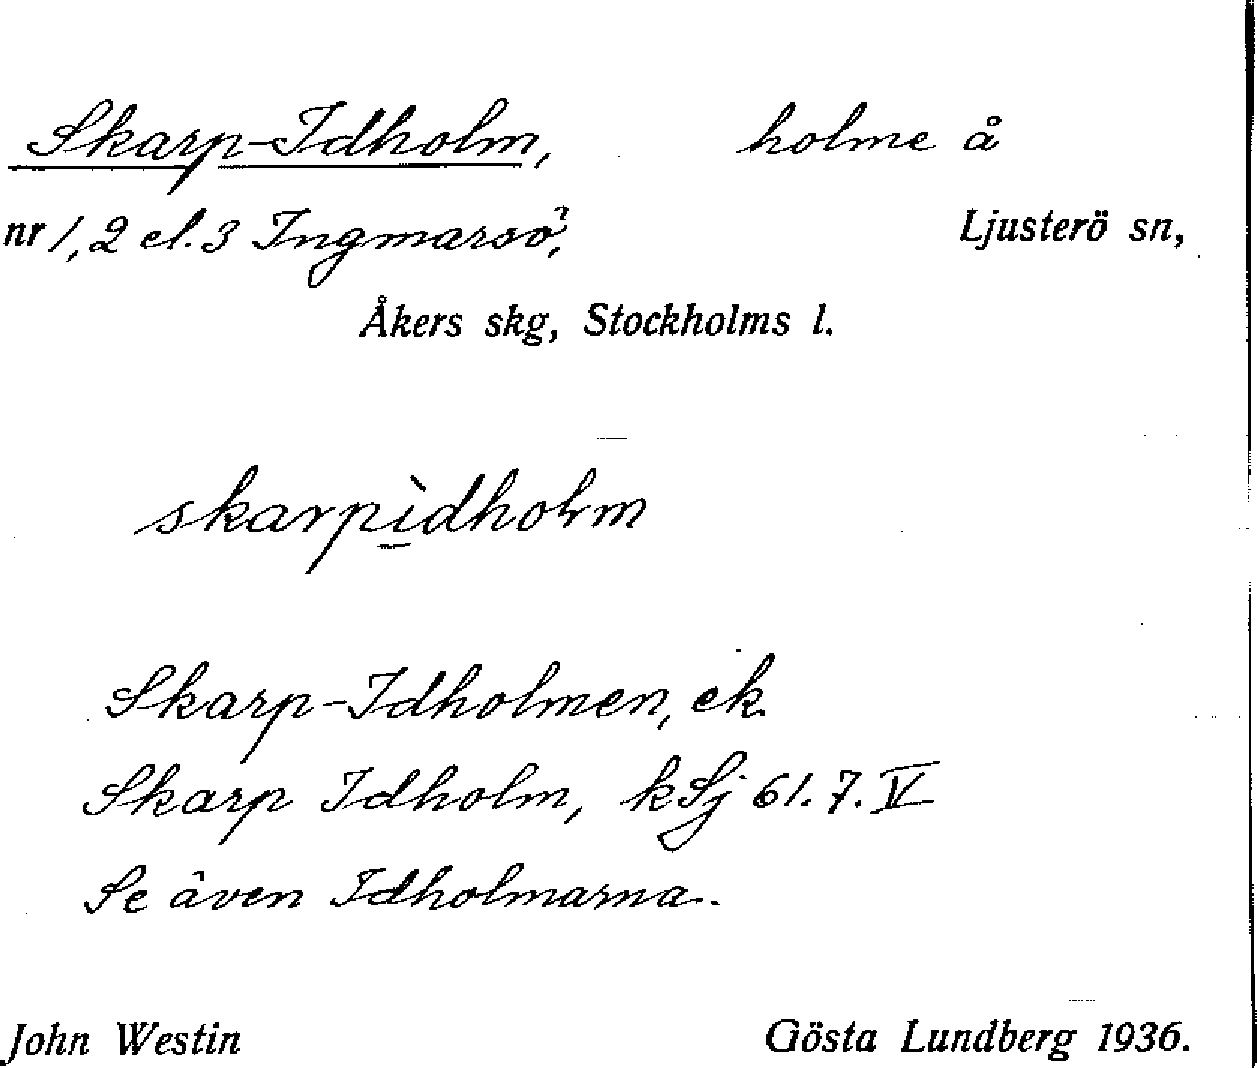 Skarp-Idholm, holme å
nr 1, 2 el. 3 Ingmarsö, Ljusterö sn,
Åkers skg, Stockholms l.
skarpìdholm
Skarp-Idholmen, ek.
Skarp Idholm, kSj 61.7.IV
Se även Idholmarna.
John Westin Gösta Lundberg 1936.